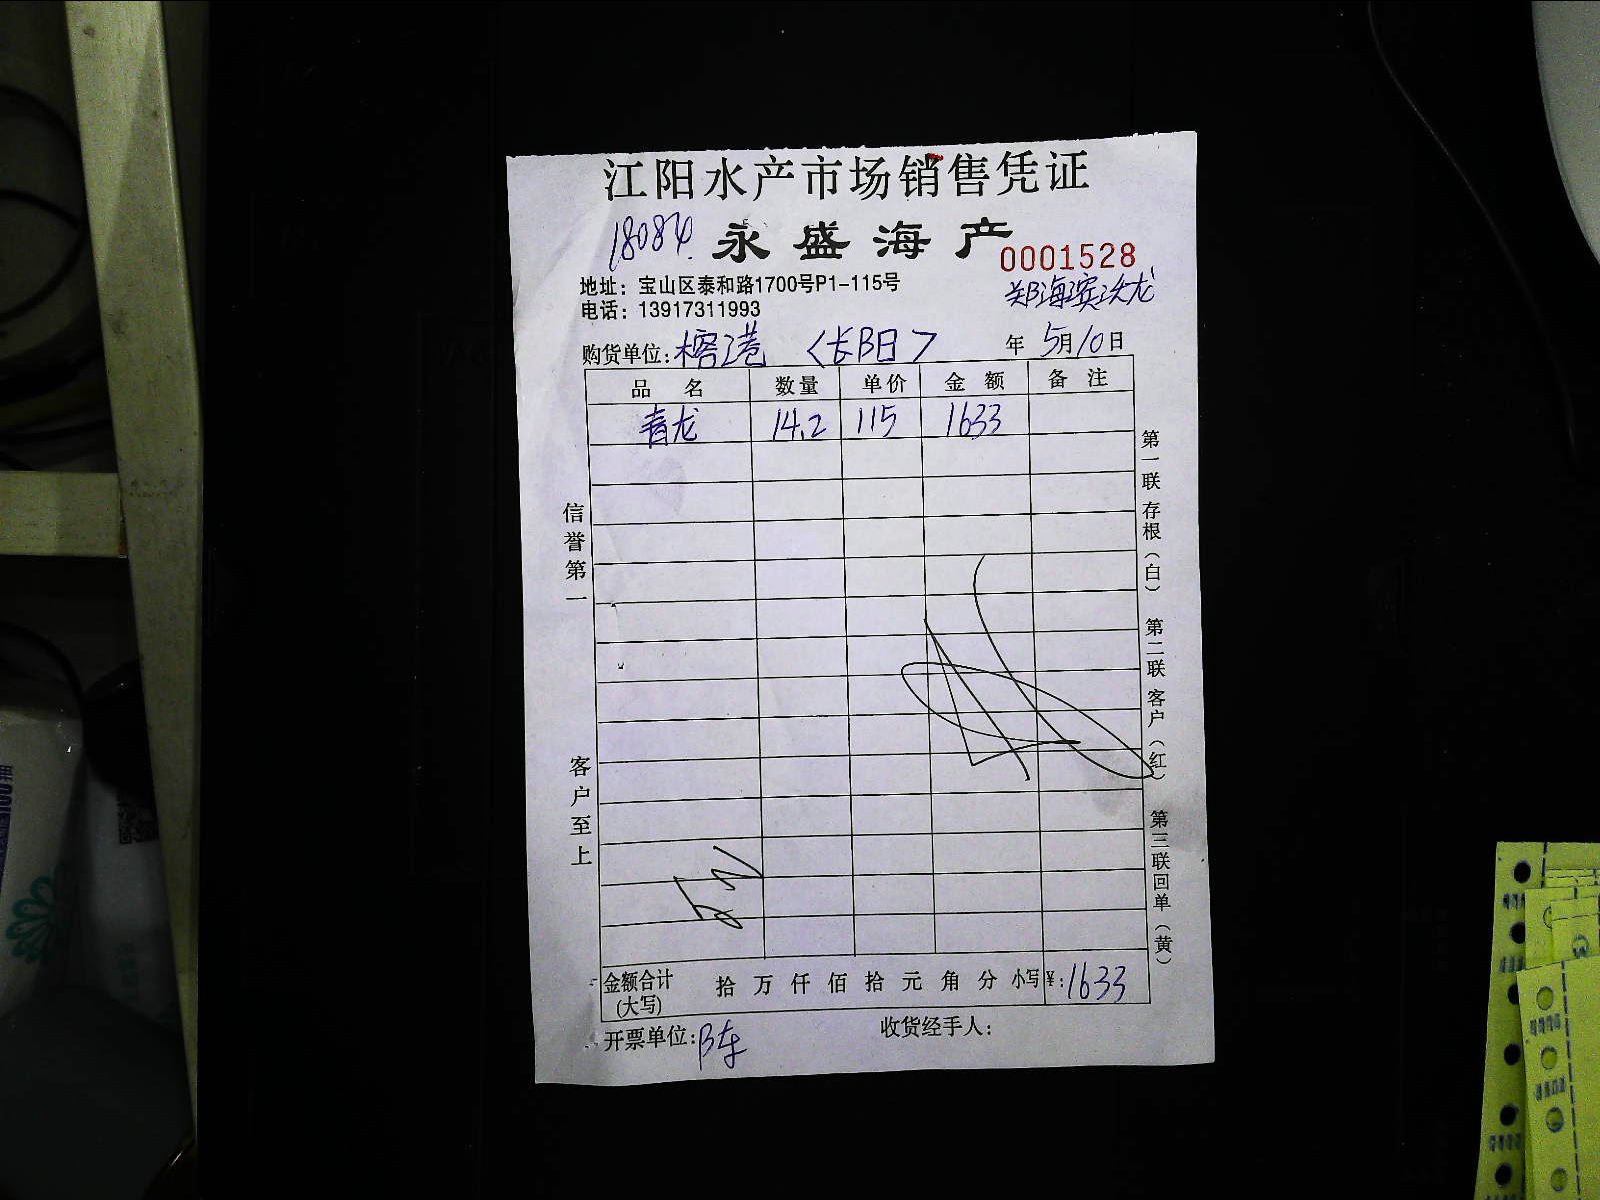 江阳水产市场销售凭证
18084 永盛海产
0001528
地址：宝山区泰和路1700号P1-115号
郑海滨沃龙
电话：13917311993
购货单位：榕港 〈长阳〉 年 5月10日
品名 数量 单价 金额 备注
青龙 14.2 115 1633
信誉第一
客户至上
第一联 存根（白） 第二联 客户（红） 第三联 回单（黄）
金额合计(大写) 拾 万 仟 佰 拾 元 角 分 小写¥:1633
开票单位：陈 收货经手人：